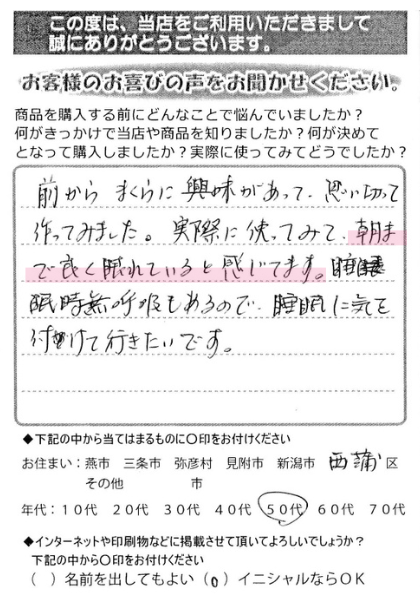 この度は、当店をご利用いただきまして
誠にありがとうございます。
お客様のお喜びの声をお聞かせください。
商品を購入する前にどんなことで悩んでいましたか？
何がきっかけで当店や商品を知りましたか？何が決めて
となって購入しましたか？実際に使ってみてどうでしたか？
前から まくらに 興味があって、思い切って
作ってみました。実際に使ってみて、朝ま
で良く眠れていると感じてます。睡
眠時無呼吸もあるので、睡眠に気を
付けて行きたいです。
◆下記の中から当てはまるものに〇印をお付けください
お住まい：燕市 三条市 弥彦村 見附市 新潟市 西蒲 区
その他 市
年代：10代 20代 30代 40代 50代 60代 70代
◆インターネットや印刷物などに掲載させて頂いてよろしいでしょうか？
下記の中から〇印をお付けください
（ ）名前を出してもよい（o）イニシャルならOK